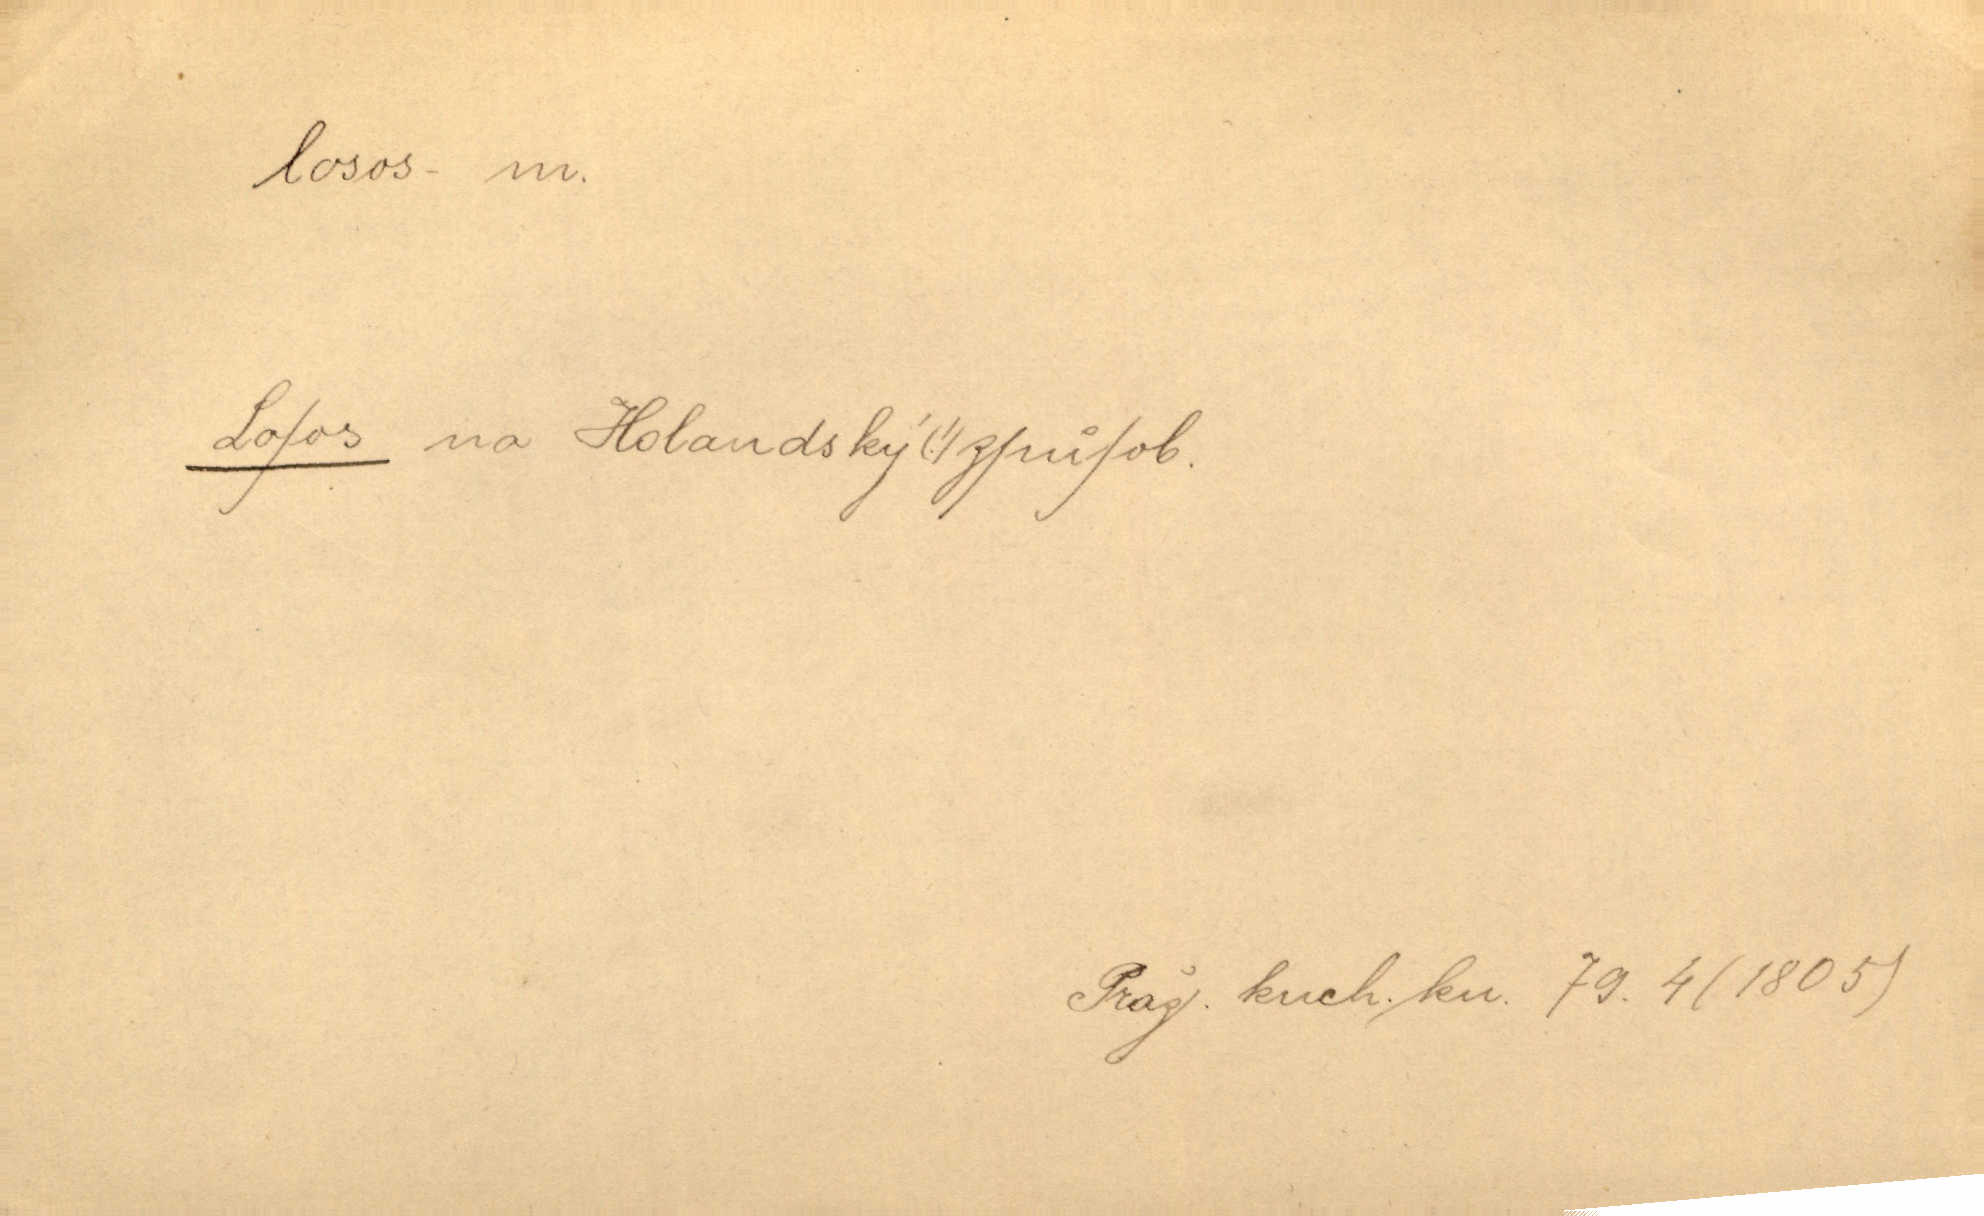 losos - m.
Loſos na Holandský (!) způſob.
Praž. kuch. kn. 79. 4 (1805)